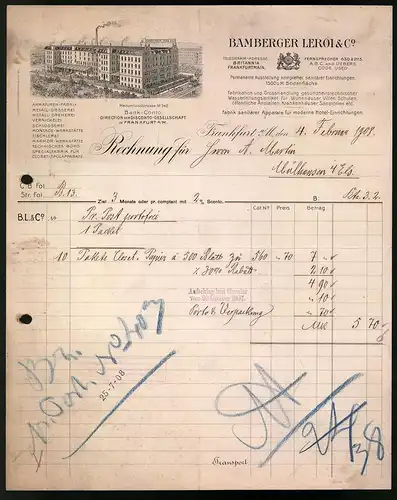 BAMBERGER LEROI & Co.
TELEGRAMM-ADRESSE: BRITANNIA FRANKFURTMAIN.
FERNSPRECHER 650 & 2113.
A.B.C. and LIEBERS CODE USED.
Permanente Ausstellung completter sanitärer Einrichtungen
1500 □ M. Bodenfläche
Fabrikation und Grosshandlung gesundheitstechnischer
Wasserleitungsartikel für Wohnhäuser, Villen, Schulen,
öffentliche Anstalten, Krankenhäuser, Sanatorien etc.
Fabrik sanitärer Apparate für moderne Hotel-Einrichtungen.
ARMATUREN-FABRIK
METALL-GIESSEREI
METALL-DREHEREI
VERNICKELEI
SCHLOSSEREI
MONTAGE-WERKSTÄTTE
TISCHLEREI
MARMOR-WERKSTÄTTE
TECHNISCHES BUREAU
SPECIALFABRIK FÜR
CLOSET-SPÜLAPPARATE
Bank-Conto:
DIRECTION DER DISCONTO-GESELLSCHAFT
in FRANKFURT A/M.
Frankfurt a/M. den 4. Februar 1908.
Rechnung für Herrn A. Martin
Mülhausen i/Els.
C. B. fol. B. 13.
Str. fol.
Ziel: 3 Monate oder pr. comptant mit 2 % Sconto.
Cat № Preis Betrag
B.L.& Co. Pr. Post portofrei
1 Packet
10 Pakete Closet-Papier à 500 Blatt zu 560 -70 7 -
% 30% Rabatt 2 10
4 90
Aufschlag laut Circular
- 10
Porto & Verpackung - 70
Mk 5 70
25-7-08
Transport